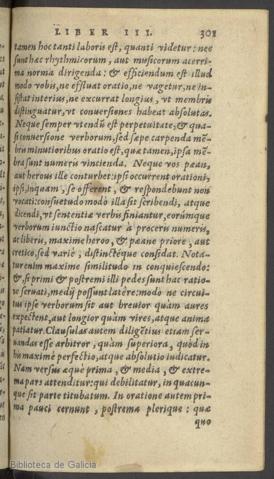 LIBER III. 301
tamen hoc tanti laboris est, quanti videtur: nec
sunt hæc rhythmicorum, aut musicorum acerri-
ma norma dirigenda: & efficiendum est illud
modo vobis, ne effluat oratio, ne vagetur, ne in-
sistat interius, ne excurrat longius, vt membris
distinguatur, vt conuersiones habeat absolutas.
Neque semper vtendũ est perpetuitate, & qua-
si conuersione verborum, sed sæpe carpenda mẽ-
bris minutioribus oratio est, quæ tamen, ipsa mẽ-
bra sunt numeris vincienda. Neque vos pæan,
aut herous ille conturbet: ipsi occurrent orationi,
ipsi, inquam, se offerent, & respondebunt non
vocati: consuetudo modò illa sit scribendi, atque
dicendi, vt sententiæ verbis finiantur, eorúmque
verborum iunctio nascatur à proceris numeris,
ac liberis, maxime heroo, & pæane priore, aut
cretico, sed varie, distinctéque considat. Nota-
tur enim maxime similitudo in conquiescendo:
&, si primi & postremi illi pedes sunt hac ratio-
ne seruati, medij possunt latere: modo ne circui-
tus ipse verborum sit aut breuior quàm aures
expectent, aut longior quàm vires, atque anima
patiatur. Clausulas autem diligẽtius etiam ser-
uandas esse arbitror, quàm superiora, quòd in
his maximè perfectio, atque absolutio iudicatur.
Nam versus æque prima, & media, & extre-
ma pars attenditur: qui debilitatur, in quacun-
que sit parte titubatum. In oratione autem pri-
ma pauci cernunt, postrema plerique: quæ
quo
Biblioteca de Galicia